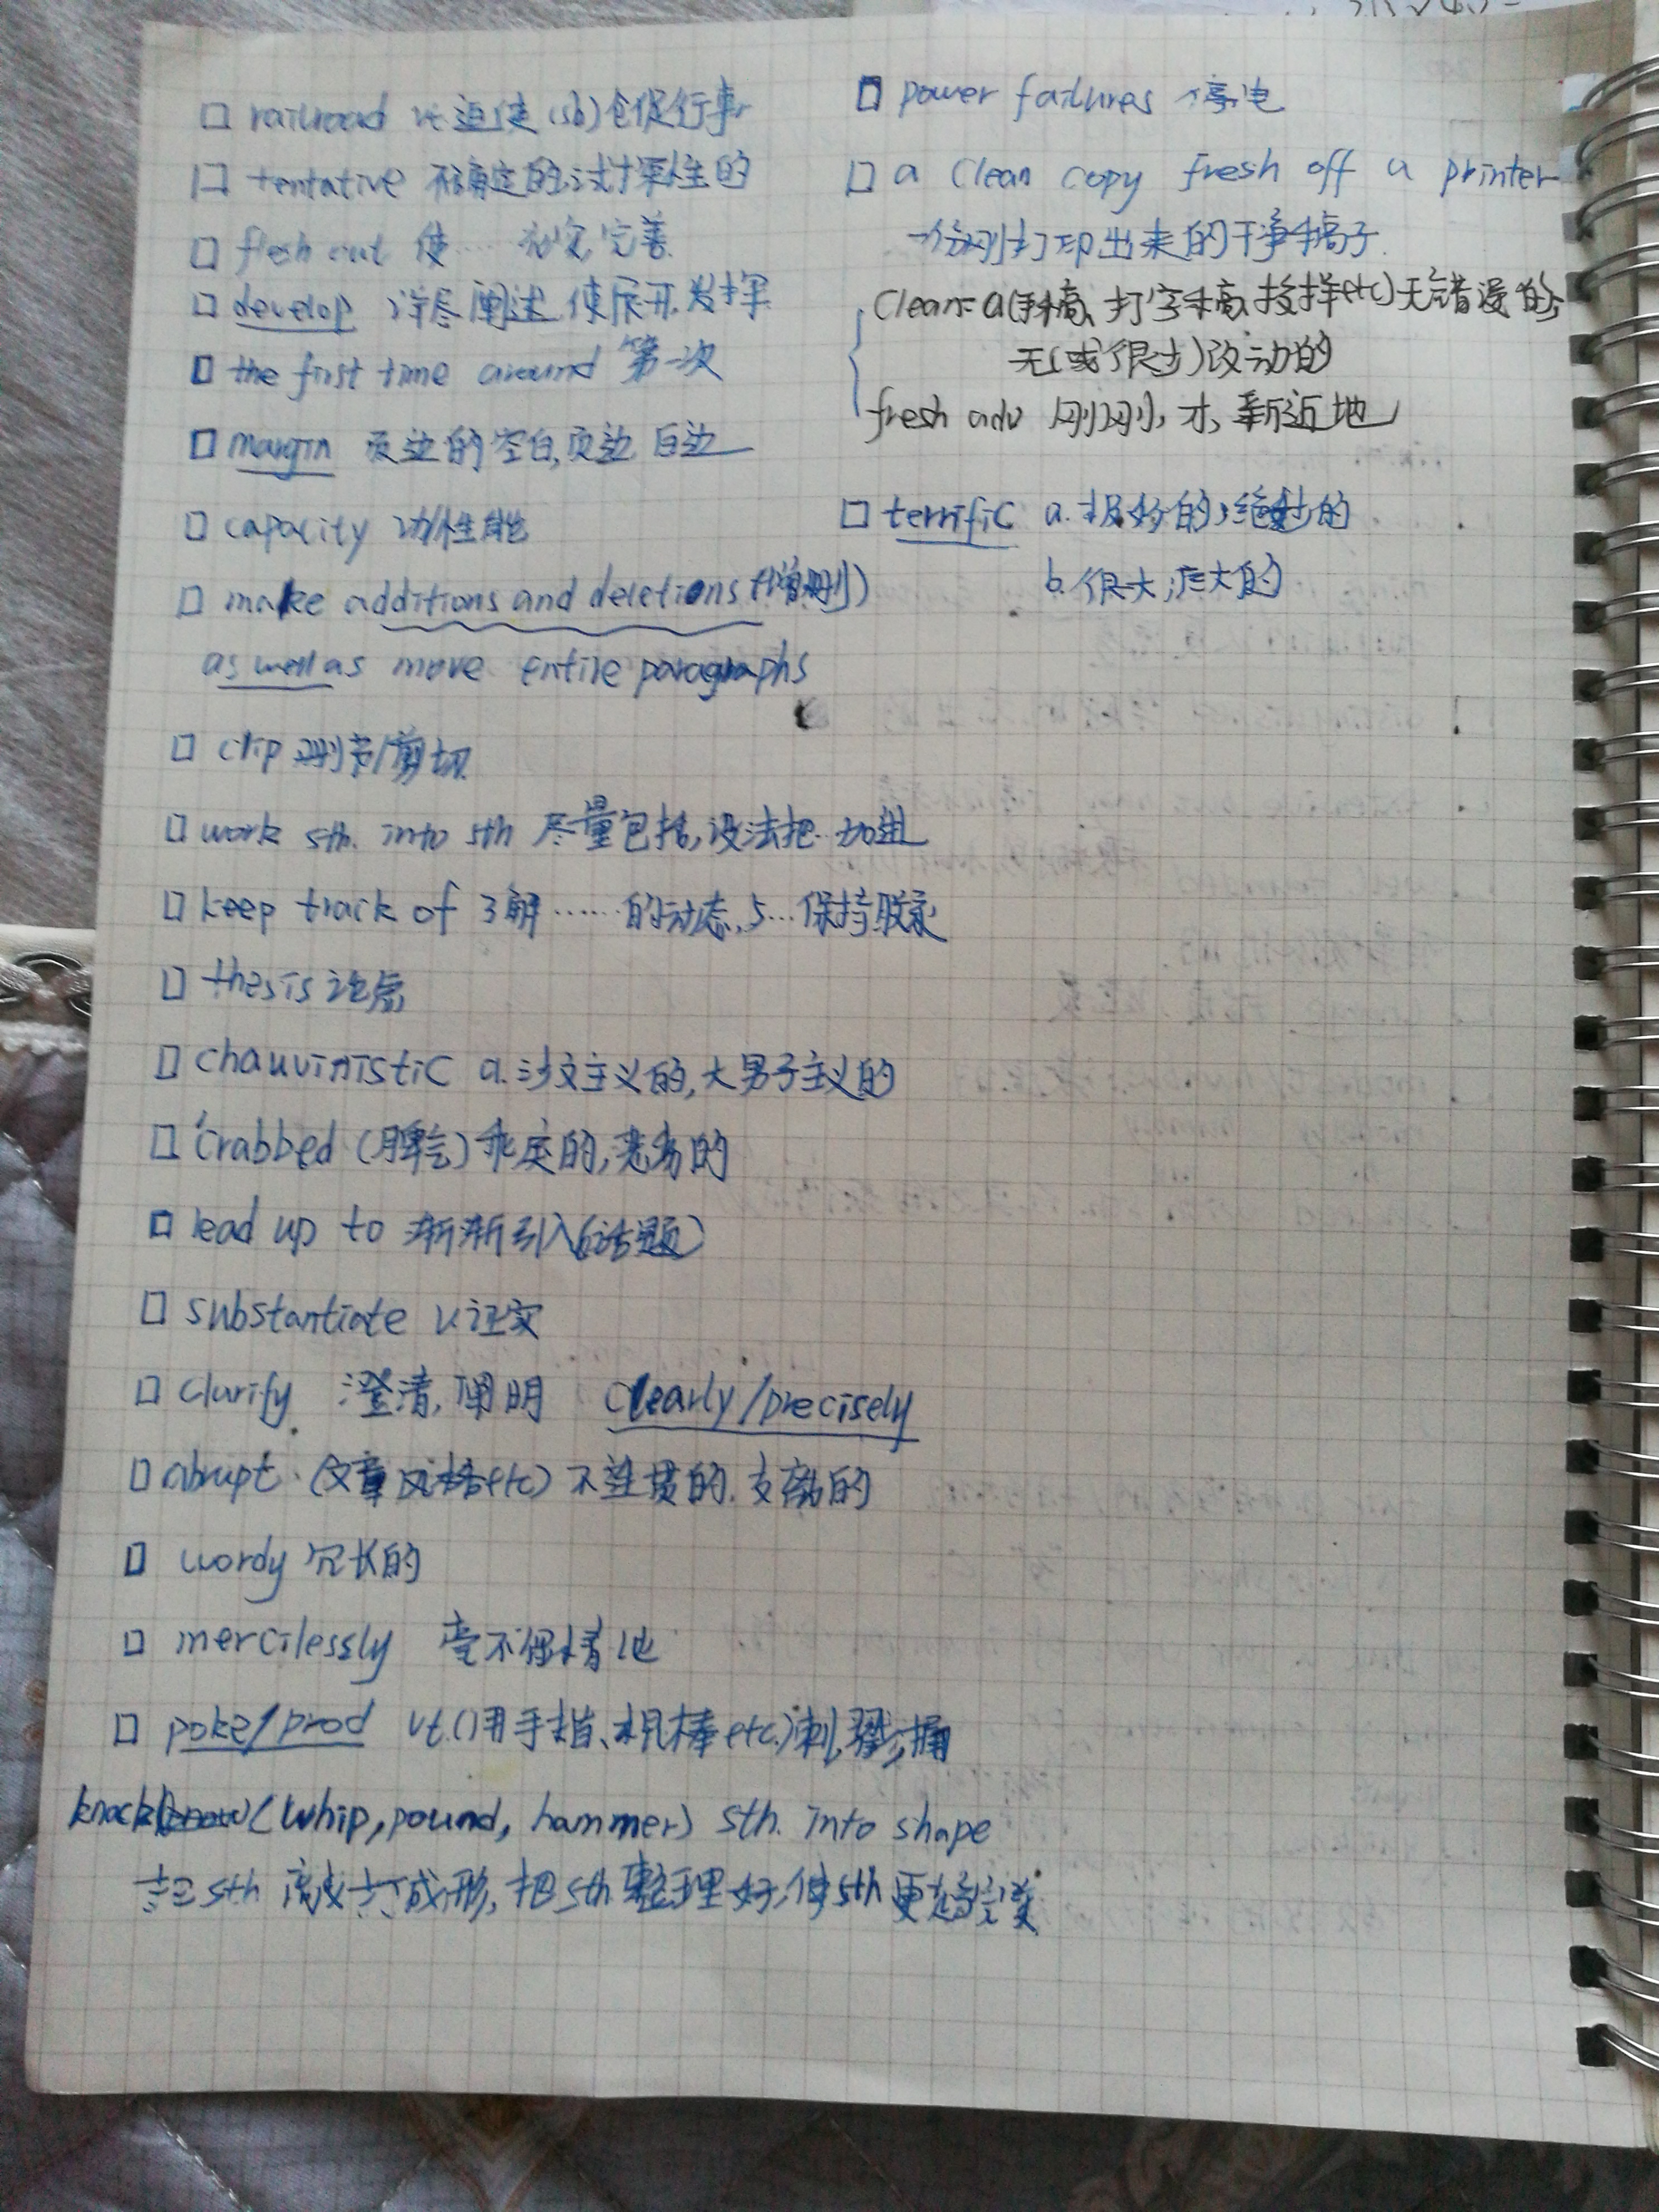 □ railroad vt. 迫使(sb)仓促行事
□ tentative 不确定的,试探性的
□ flesh out 使……充实,完善
□ develop 详尽阐述,使展开,发挥
□ the first time around 第一次
□ margin 页边的空白,页边 白边
□ capacity 功能性能
□ make additions and deletions (增删)
as well as move entire paragraphs
□ clip 删节/剪切
□ work sth. into sth 尽量包括,设法把…加进
□ keep track of 了解……的动态,与…保持联系
□ thesis 论点
□ chauvinistic a. 沙文主义的,大男子主义的
□ crabbed (脾气)乖戾的,恶劣的
□ lead up to 渐渐引入(话题)
□ substantiate v. 证实
□ clarify 澄清,阐明 clearly/precisely
□ abrupt (文章风格etc) 不连贯的,支离的
□ wordy 冗长的
□ mercilessly 毫不留情地
□ poke/prod vt.(用手指、棍棒etc.)刺,戳,捅
knock (whip, pound, hammer) sth. into shape
sth 敲打成形,把sth整理好,使sth更趋完美
□ power failures 停电
□ a clean copy fresh off a printer
一份刚打印出来的干净稿子
clean: a(手稿、打字稿、校样etc)无错误的,
无(或很少)改动的
fresh adv 刚刚,才,新近地
□ terrific a. 极好的,绝妙的
b. 很大,庞大的